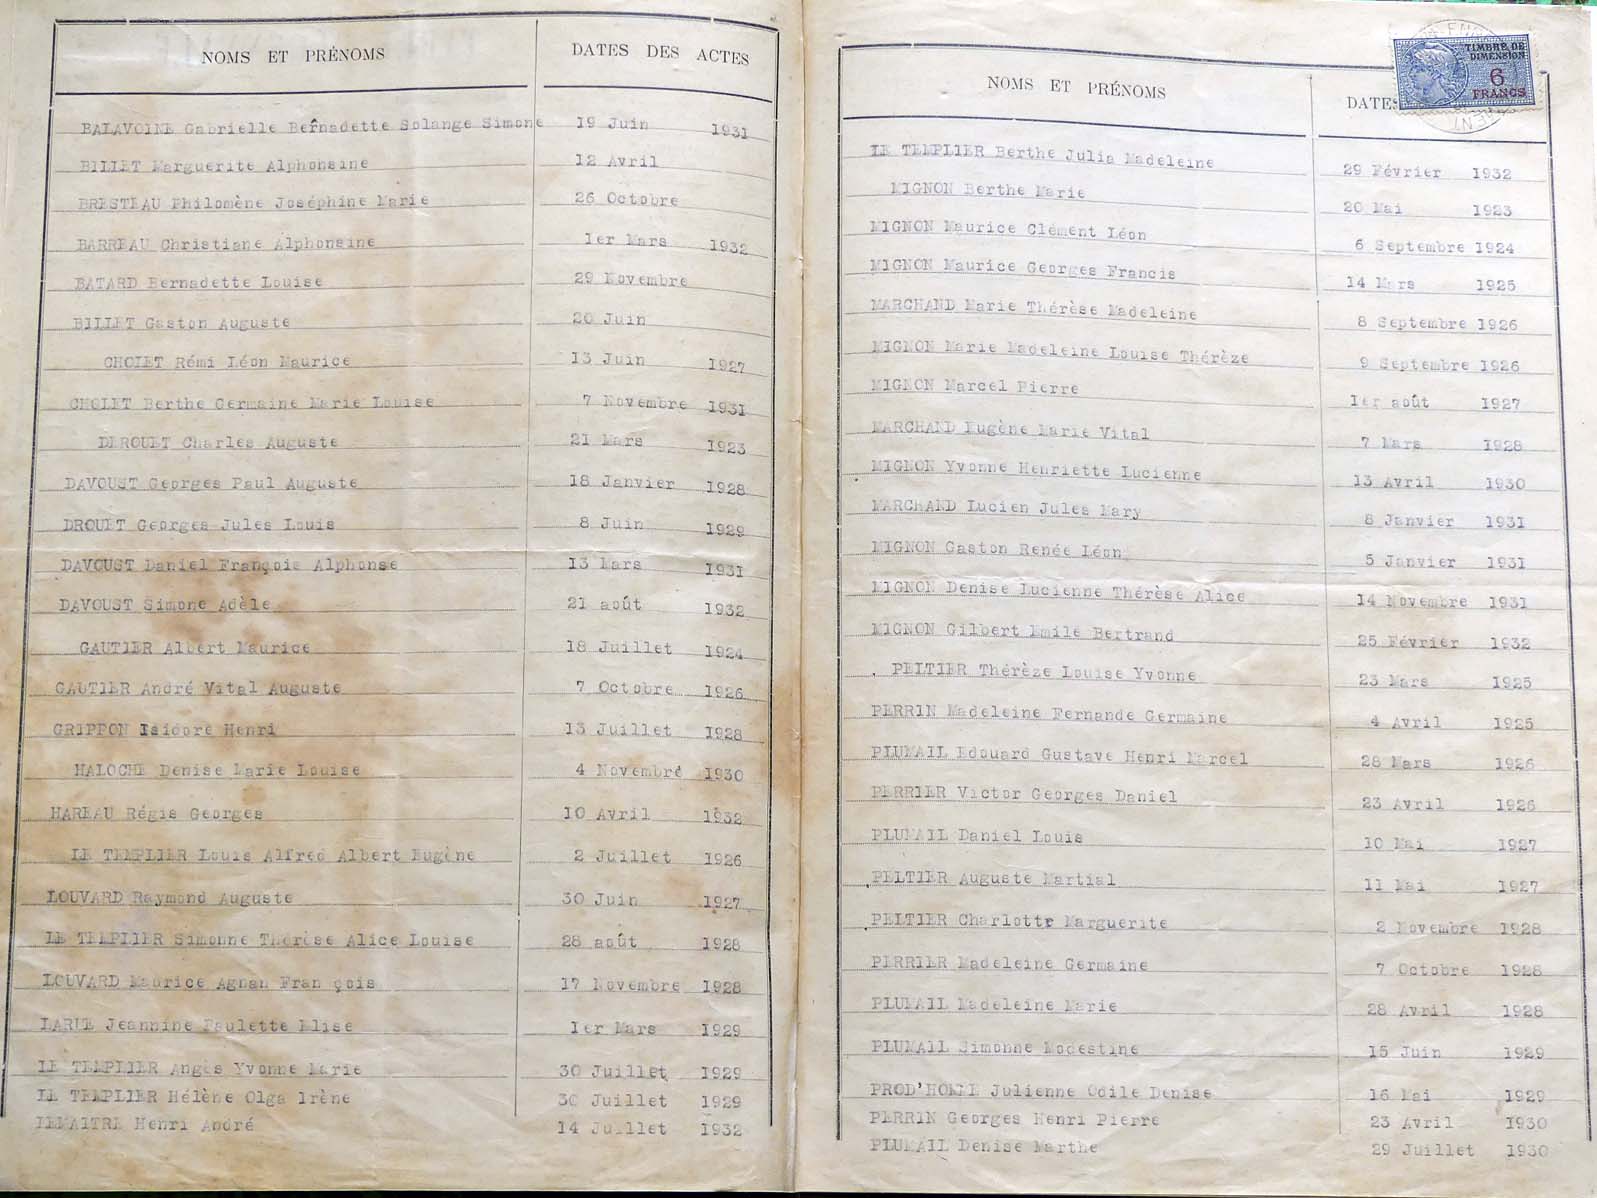 NOMS ET PRÉNOMS DATES DES ACTES
BALAVOINE Gabrielle Bernadette Solange Simone 19 Juin 1931
BILLET Marguerite Alphonsine 12 Avril
BRESTEAU Philomène Joséphine Marie 26 Octobre
BARREAU Christiane Alphonsine 1er Mars 1932
BATARD Bernadette Louise 29 Novembre
BILLET Gaston Auguste 20 Juin
CHOLET Rémi Léon Maurice 13 Juin 1927
CHOLET Berthe Germaine Marie Louise 7 Novembre 1931
DEROUET Charles Auguste 21 Mars 1923
DAVOUST Georges Paul Auguste 18 Janvier 1928
DROUET Georges Jules Louis 8 Juin 1929
DAVOUST Daniel François Alphonse 13 Mars 1931
DAVOUST Simone Adèle 21 août 1932
GAUTIER Albert Maurice 18 Juillet 1924
GAUTIER André Vital Auguste 7 Octobre 1926
GRIPPON Isidore Henri 13 Juillet 1928
HALOCHE Denise Marie Louise 4 Novembre 1930
HAREAU Régis Georges 10 Avril 1932
LE TEMPLIER Louis Alfred Albert Eugène 2 Juillet 1926
LOUVARD Raymond Auguste 30 Juin 1927
LE TEMPLIER Simonne Thérèse Alice Louise 28 août 1928
LOUVARD Maurice Agnan Fran çois 17 Novembre 1928
LARUE Jeannine Paulette Elise 1er Mars 1929
LE TEMPLIER Anges Yvonne Marie 30 Juillet 1929
LE TEMPLIER Hélène Olga Irène 30 Juillet 1929
LEMAITRE Henri André 14 Juillet 1932
NOMS ET PRÉNOMS DATES
TIMBRE DE
DIMENSION
6
FRANCS
LE TEMPLIER Berthe Julia Madeleine 29 Février 1932
MIGNON Berthe Marie 20 Mai 1923
MIGNON Maurice Clément Léon 6 Septembre 1924
MIGNON Maurice Georges Francis 14 Mars 1925
MARCHAND Marie Thérèse Madeleine 8 Septembre 1926
MIGNON Marie Madeleine Louise Thérèze 9 Septembre 1926
MIGNON Marcel Pierre 1er août 1927
MARCHAND Eugène Marie Vital 7 Mars 1928
MIGNON Yvonne Henriette Lucienne 13 Avril 1930
MARCHAND Lucien Jules Mary 8 Janvier 1931
MIGNON Gaston Renée Léon 5 Janvier 1931
MIGNON Denise Lucienne Thérèse Alice 14 Novembre 1931
MIGNON Gilbert Emile Bertrand 25 Février 1932
PELTIER Thérèze Louise Yvonne 23 Mars 1925
PERRIN Madeleine Fernande Germaine 4 Avril 1925
PLUMAIL Edouard Gustave Henri Marcel 28 Mars 1926
PERRIER Victor Georges Daniel 23 Avril 1926
PLUMAIL Daniel Louis 10 Mai 1927
PELTIER Auguste Martial 11 Mai 1927
PELTIER Charlottr Marguerite 2 Novembre 1928
PERRIER Madeleine Germaine 7 Octobre 1928
PLUMAIL Madeleine Marie 28 Avril 1928
PLUMAIL Simonne Modestine 15 Juin 1929
PROD'HOMME Julienne Odile Denise 16 Mai 1929
PERRIN Georges Henri Pierre 23 Avril 1930
PLUMAIL Denise Marthe 29 Juillet 1930